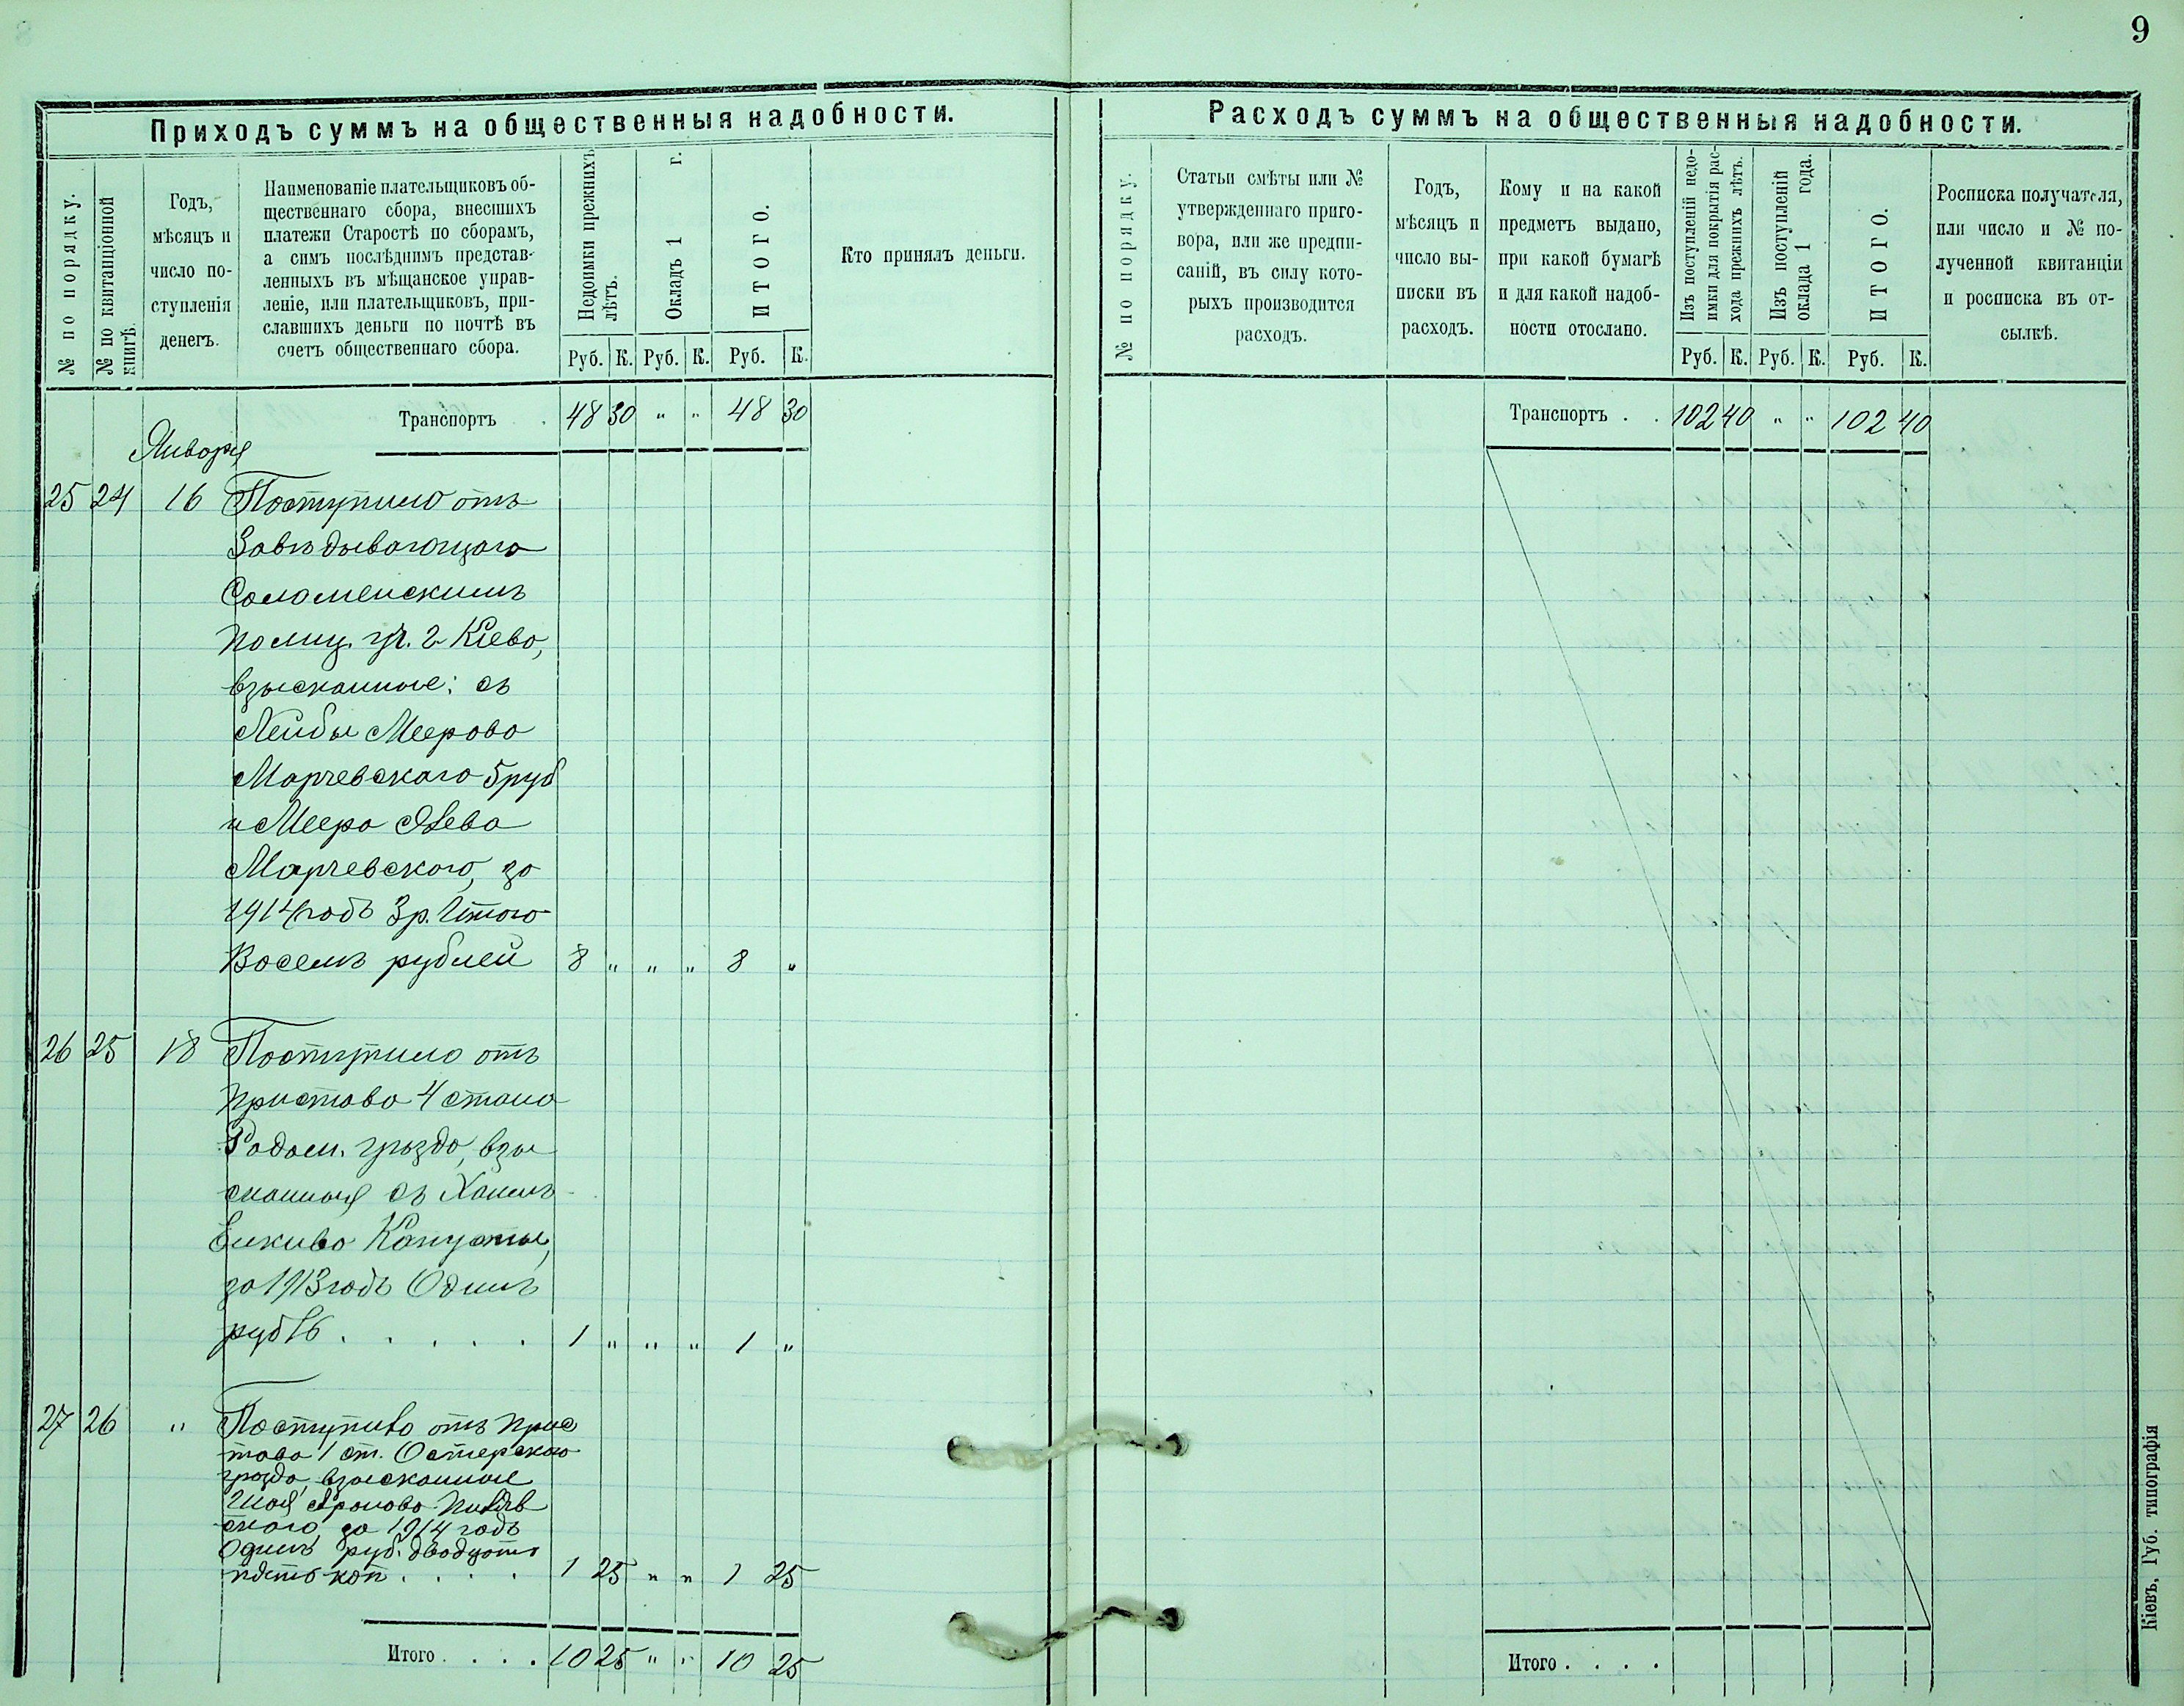 9
Приходъ суммъ на общественныя надобности.
№ по порядку.
№ по квитанціонной
книгѣ.
Годъ,
мѣсяцъ и
число по-
ступленія
денегъ.
Наименованіе плательщиковъ об-
щественнаго сбора, внесшихъ
платежи Старостѣ по сборамъ,
а симъ послѣднимъ представ-
ленныхъ въ мѣщанское управ-
леніе, или плательщиковъ, при-
славшихъ деньги по почтѣ въ
счетъ общественнаго сбора.
Недоимки прежнихъ
лѣтъ.
Окладъ 1 г.
ИТОГО.
Руб. К. Руб. К. Руб. К.
Кто принялъ деньги.
Транспортъ . 48 30 " " 48 30
Января
25 24 16 Поступило отъ
Завѣдывающаго
Соломенскимъ
полиц. уч. г. Кіева,
взысканные: съ
Лейбы Меерова
Марчевскаго 5 руб
и Меера
Марчевского, за
1914 годъ 3 р. Итого
Восемь рублей 8 " " " 8 "
26 25 18 Поступило отъ
пристава 4 стана
Радом. уѣзда, взы
сканныя съ
за 1913 годъ Одинъ
рубль . . . . . 1 " " " 1 "
27 26 " Поступило отъ прис
тава 1 ст. Остерскаго
уѣзда, взысканные
Аронова
за 1914 годъ
Одинъ руб. двадцать
пять коп . . . . 1 25 " " 1 25
Итого . . . . 10 25 " " 10 25
Расходъ суммъ на общественныя надобности.
№ по порядку.
Статьи смѣты или №
утвержденнаго приго-
вора, или же предпи-
саній, въ силу кото-
рыхъ производится
расходъ.
Годъ,
мѣсяцъ и
число вы-
писки въ
расходъ.
Кому и на какой
предметъ выдано,
при какой бумагѣ
и для какой надоб-
ности отослано.
Изъ поступленій недо-
имки для покрытія рас-
хода прежнихъ лѣтъ.
Изъ поступленій
оклада 1 года.
ИТОГО.
Руб. К. Руб. К. Руб. К.
Росписка получателя,
или число и № по-
лученной квитанціи
и росписка въ от-
сылкѣ.
Транспортъ . . 102 40 " " 102 40
Итого . . . .
Кіевъ, Губ. типографія